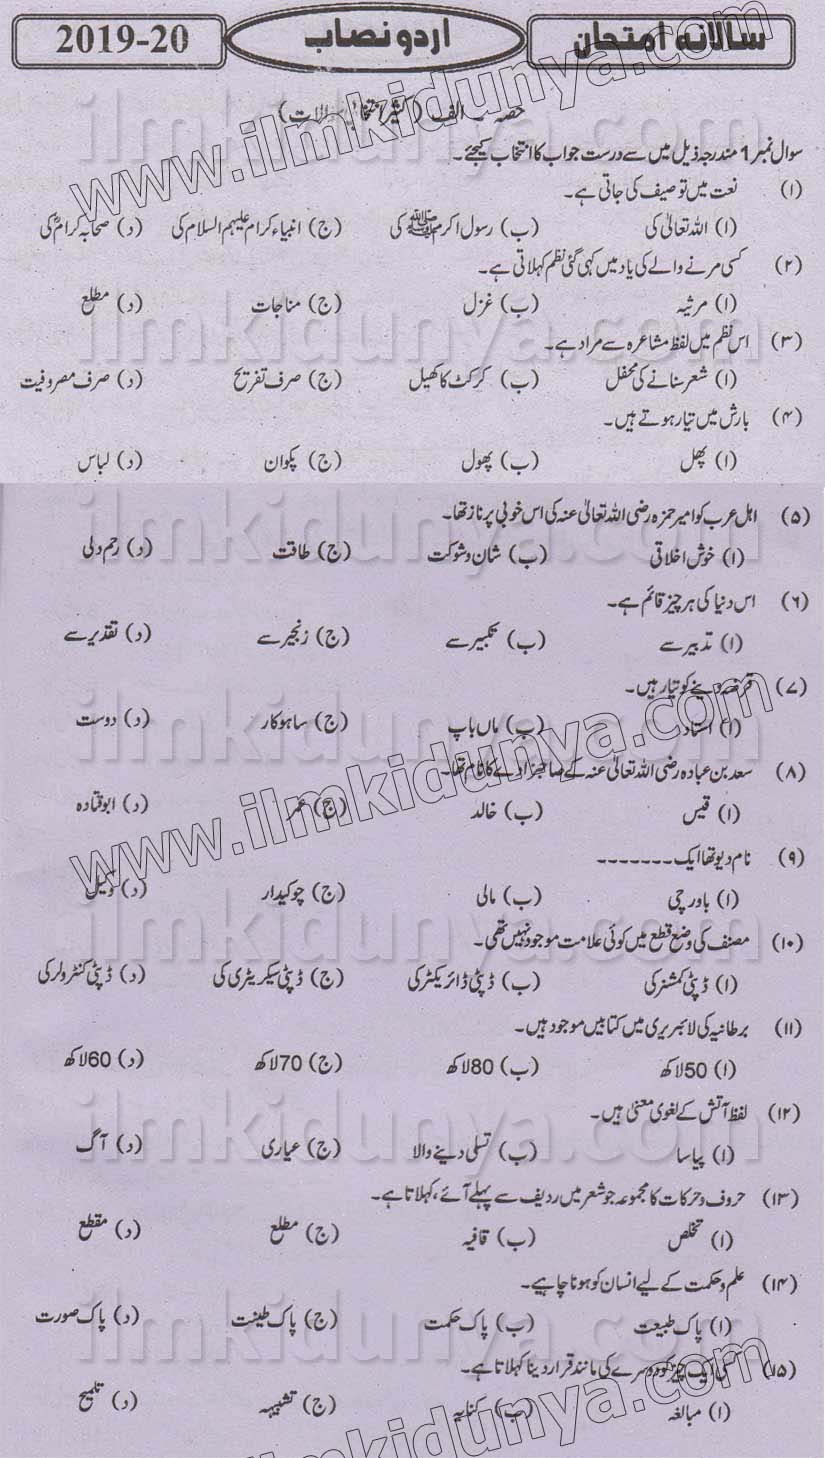 سالانہ امتحان اردو نصاب 2019-20
حصہ - الف (کثیر الانتخابی سوالات)
سوال نمبر 1 مندرجہ ذیل میں سے درست جواب کا انتخاب کیجئے۔
(۱) نعت میں توصیف کی جاتی ہے۔
(ا) اللہ تعالیٰ کی (ب) رسول اکرم ﷺ کی (ج) انبیاء کرام علیہم السلام کی (د) صحابہ کرامؓ کی
(۲) کسی مرنے والے کی یاد میں کہی گئی نظم کہلاتی ہے۔
(ا) مرثیہ (ب) غزل (ج) مناجات (د) مطلع
(۳) اس نظم میں لفظ مشاعرہ سے مراد ہے۔
(ا) شعر سنانے کی محفل (ب) کرکٹ کا کھیل (ج) صرف تفریح (د) صرف مصروفیت
(۴) بارش میں تیار ہوتے ہیں۔
(ا) پھل (ب) پھول (ج) پکوان (د) لباس
(۵) اہل عرب کو امیر حمزہ رضی اللہ تعالیٰ عنہ کی اس خوبی پر ناز تھا۔
(ا) خوش اخلاقی (ب) شان و شوکت (ج) طاقت (د) رحم دلی
(۶) اس دنیا کی ہر چیز قائم ہے۔
(ا) تدبیر سے (ب) تکبیر سے (ج) زنجیر سے (د) تقدیر سے
(۷) قرضہ دینے کو تیار ہیں۔
(ا) استاد (ب) ماں باپ (ج) ساہوکار (د) دوست
(۸) سعد بن عبادہ رضی اللہ تعالیٰ عنہ کے صاحبزادے کا نام تھا۔
(ا) قیس (ب) خالد (ج) عمر (د) ابو قتادہ
(۹) نام دیو تھا ایک -------
(ا) باورچی (ب) مالی (ج) چوکیدار (د) وکیل
(۱۰) مصنف کی وضع قطع میں کوئی علامت موجود نہیں تھی۔
(ا) ڈپٹی کمشنر کی (ب) ڈپٹی ڈائریکٹر کی (ج) ڈپٹی سیکریٹری کی (د) ڈپٹی کنٹرولر کی
(۱۱) برطانیہ کی لائبریری میں کتابیں موجود ہیں۔
(ا) 50 لاکھ (ب) 80 لاکھ (ج) 70 لاکھ (د) 60 لاکھ
(۱۲) لفظ آتش کے لغوی معنیٰ ہیں۔
(ا) پیاسا (ب) تسلی دینے والا (ج) عیاری (د) آگ
(۱۳) حروف و حرکات کا مجموعہ جو شعر میں ردیف سے پہلے آئے، کہلاتا ہے۔
(ا) تخلص (ب) قافیہ (ج) مطلع (د) مقطع
(۱۴) علم و حکمت کے لیے انسان کو ہونا چاہیے۔
(ا) پاک طبیعت (ب) پاک حکمت (ج) پاک طینت (د) پاک صورت
(۱۵) کسی ایک چیز کو دوسرے کی مانند قرار دینا کہلاتا ہے۔
(ا) مبالغہ (ب) کنایہ (ج) تشبیہہ (د) تلمیح
www.ilmkidunya.com
ilmkidunya.com
ilmkidunya.com
ilmkidunya.com
ilmkidunya.com
www.ilmkidunya.com
ilmkidunya.com
ilmkidunya.com
ilmkidunya.com
www.ilmkidunya.com